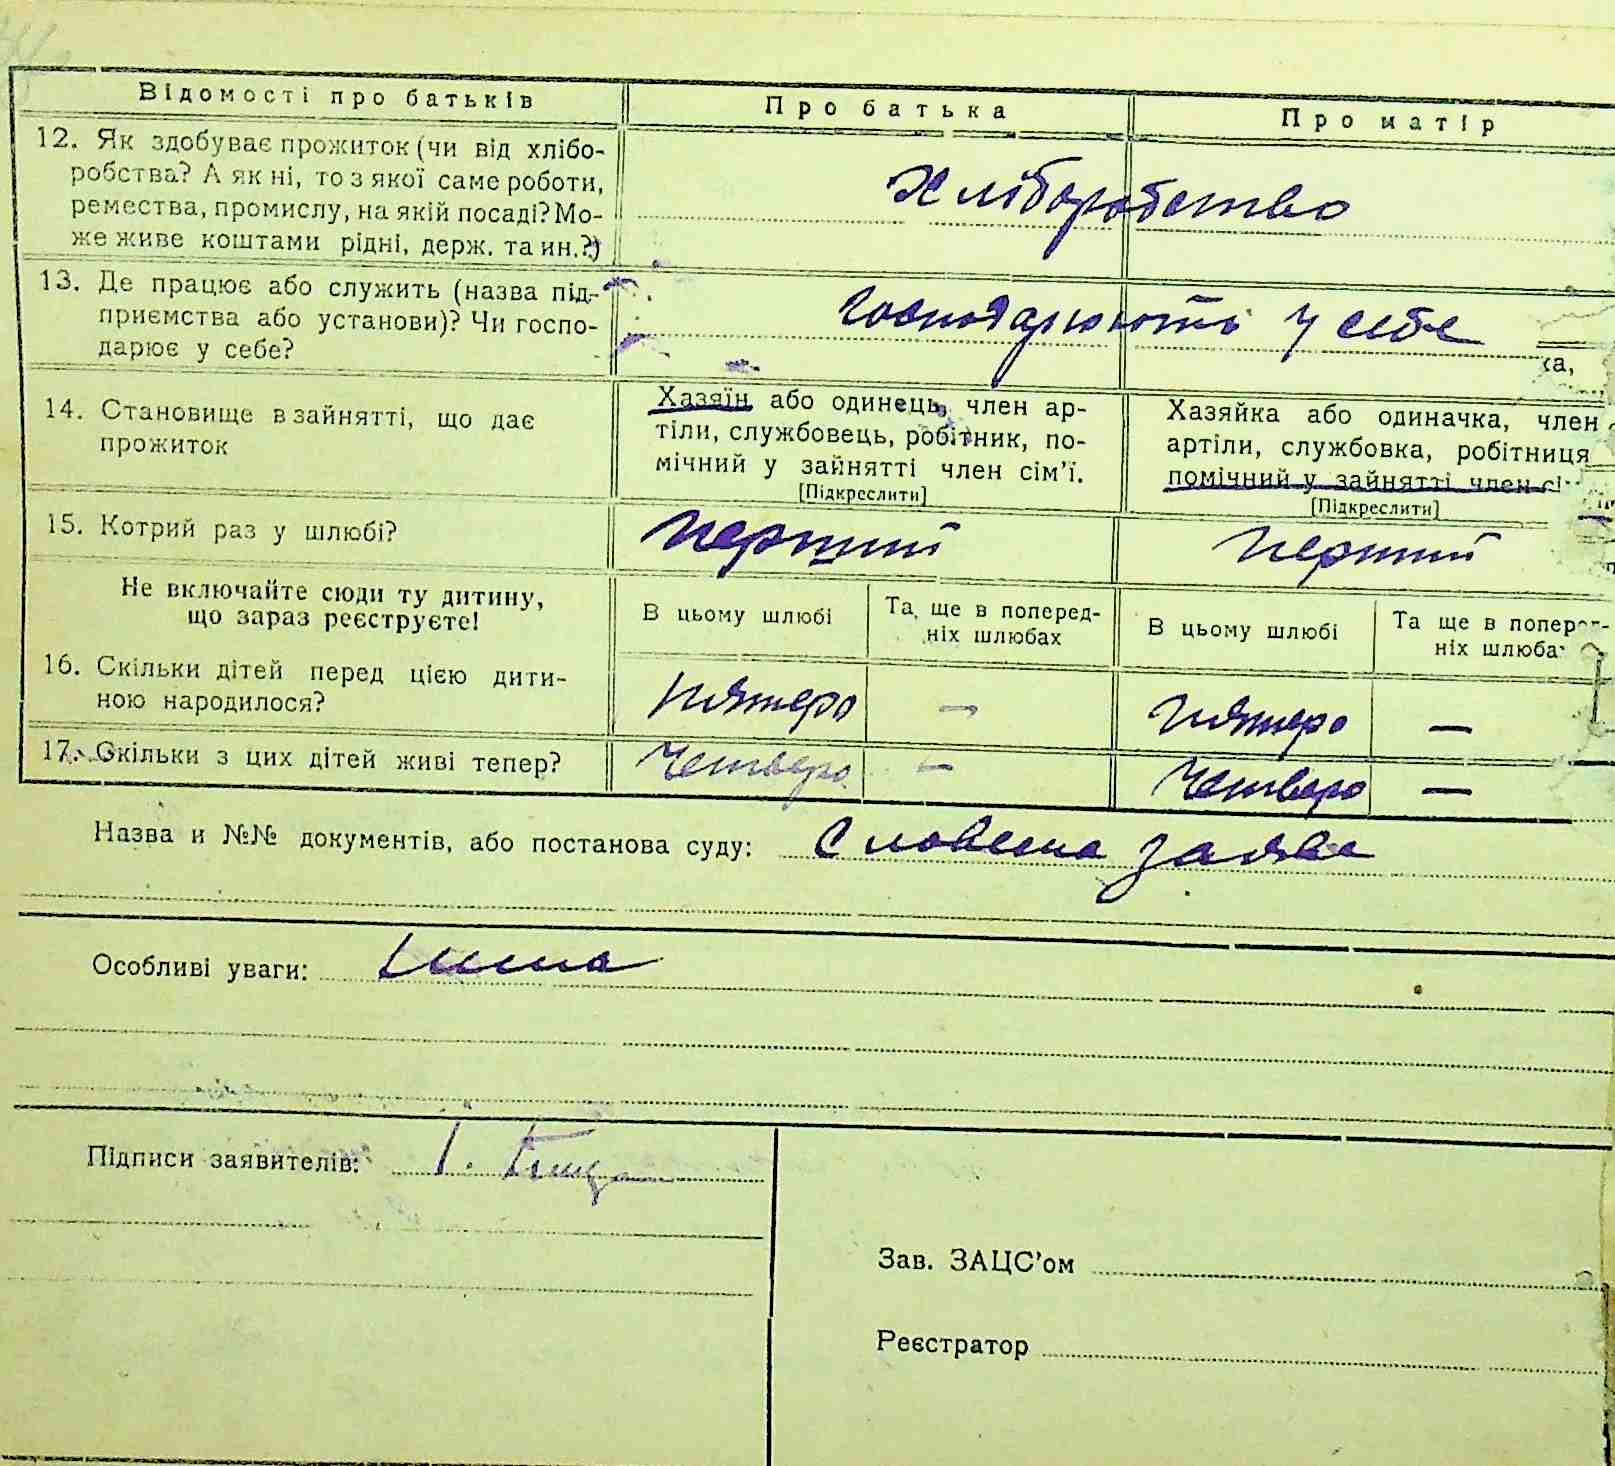 Відомості про батьків
Про батька
Про матір
12. Як здобуває прожиток (чи від хлібо-
робства? А як ні, то з якої саме роботи,
ремества, промислу, на якій посаді? Мо-
же живе коштами рідні, держ. та ин.?)
Хліборобство
13. Де працює або служить (назва під-
приємства або установи)? Чи госпо-
дарює у себе?
Господарюють у себе
ка,
14. Становище в зайнятті, що дає
прожиток
Хазяїн або одинець, член ар-
тіли, службовець, робітник, по-
мічний у зайнятті член сім'ї.
[Підкреслити]
Хазяйка або одиначка, член
артіли, службовка, робітниця
помічний у зайнятті член сі
[Підкреслити]
15. Котрий раз у шлюбі?
перший
перший
Не включайте сюди ту дитину,
що зараз реєструєте!
В цьому шлюбі
Та ще в поперед-
ніх шлюбах
В цьому шлюбі
Та ще в поперед-
ніх шлюбах
16. Скільки дітей перед цією дити-
ною народилося?
пятеро
—
пятеро
—
17. Скільки з цих дітей живі тепер?
Четверо
—
Четверо
—
Назва и №№ документів, або постанова суду: Словесна заява
Особливі уваги:
Підписи заявителів: Г.
Зав. ЗАЦС'ом
Реєстратор